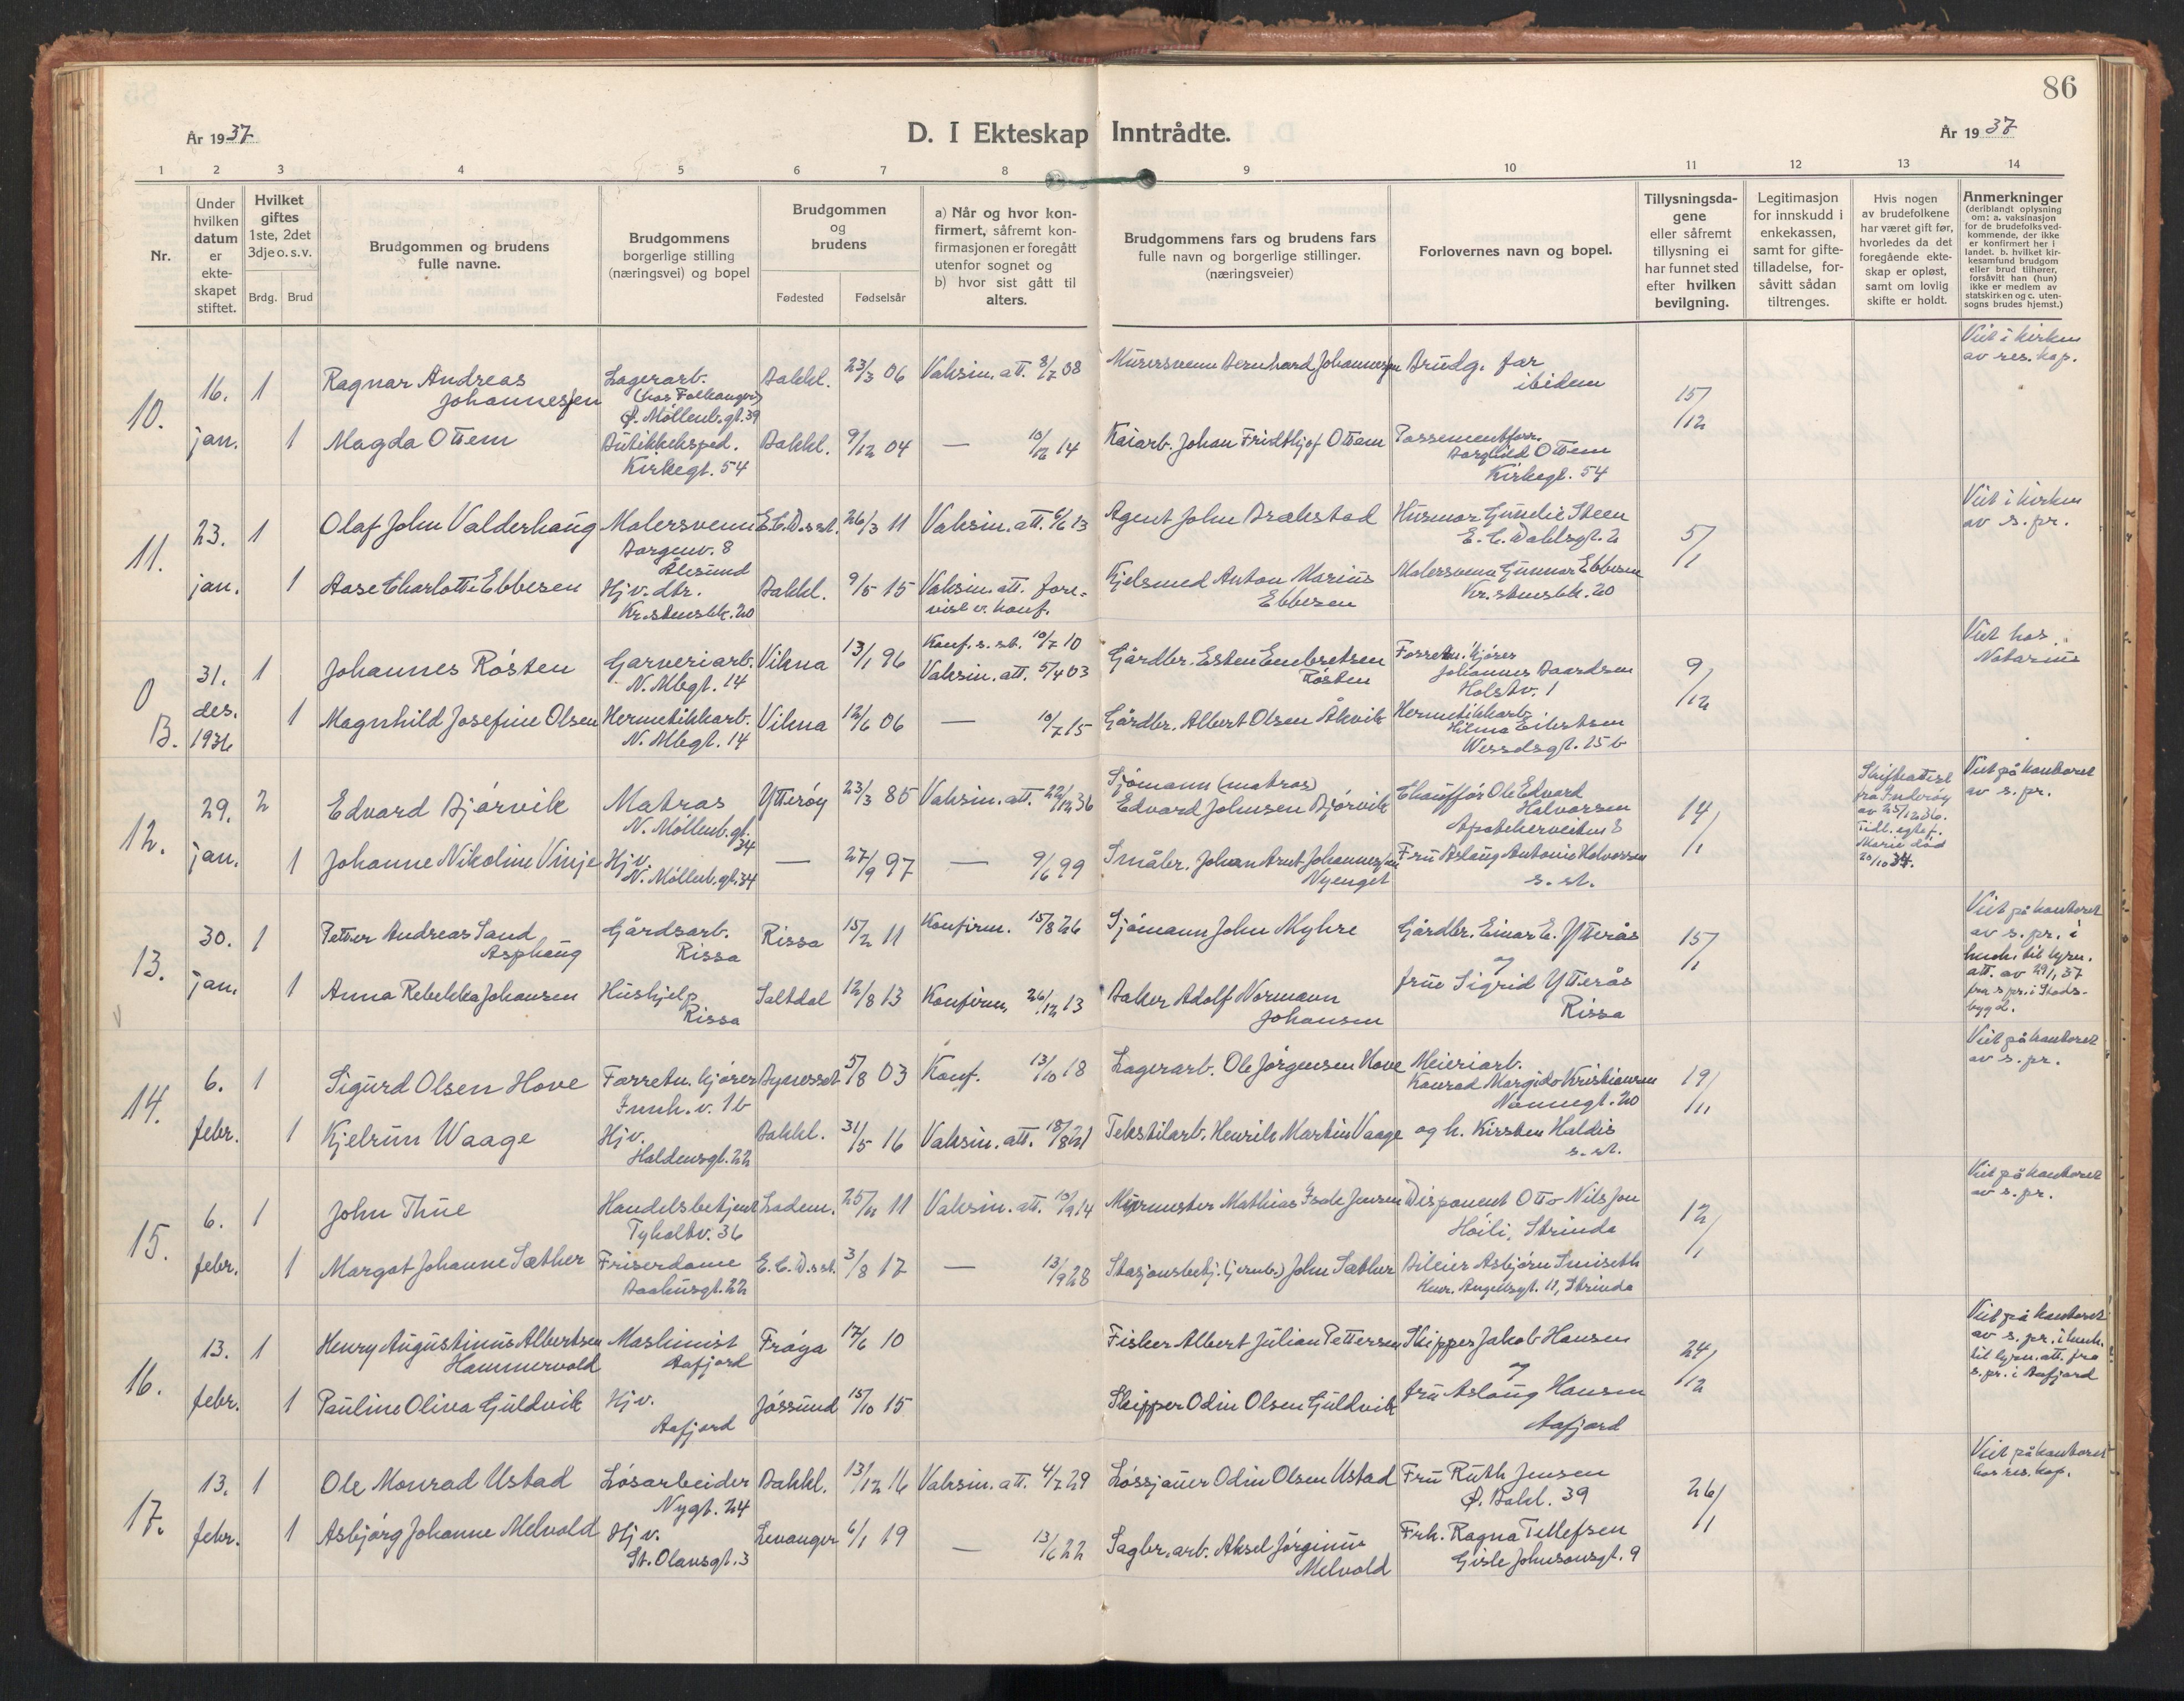 86
År 1937
D. I Ekteskap Inntrådte.
År 1937
1 2 3 4 5 6 7 8 9 10 11 12 13 14
Nr.
Under hvilken datum er ekteskapet stiftet.
Hvilket giftes 1ste, 2det 3dje o. s. v.
Brdg. Brud
Brudgommen og brudens fulle navne.
Brudgommens borgerlige stilling (næringsvei) og bopel
Brudgommen og brudens
Fødested Fødselsår
a) Når og hvor konfirmert, såfremt konfirmasjonen er foregått utenfor sognet og
b) hvor sist gått til alters.
Brudgommens fars og brudens fars fulle navn og borgerlige stillinger. (næringsveier)
Forlovernes navn og bopel.
Tillysningsdagene eller såfremt tillysning ei har funnet sted efter hvilken bevilgning.
Legitimasjon for innskudd i enkekassen, samt for giftetilladelse, forsåvitt sådan tiltrenges.
Hvis nogen av brudefolkene har været gift før, hvorledes da det foregående ekteskap er opløst, samt om lovlig skifte er holdt.
Anmerkninger (deriblandt oplysning om: a. vaksinasjon for de brudefolks vedkommende, der ikke er konfirmert her i landet. b. hvilket kirkesamfund brudgom eller brud tilhører, forsåvitt han (hun) ikke er medlem av statskirken og c. utensogns brudes hjemst.)
10. 16. jan. 1 Ragnar Andreas Johannessen
Lagerarb. (hos Falkanger) Ø. Møllenb.gt. 39
Bakkl. 23/3 06 Vaksin. att. 8/7 08
Murersvenn Bernhard Johannessen
Brudg. far ibidem
15/12
Viet i kirken av res. kap.
1 Magda Ottem
Butikkeksped. Kirkegt. 54
Bakkl. 9/12 04 — 10/12 14
Kaiarb. Johan Fridthjof Ottem
Passementforr. Borghild Ottem Kirkegt. 54
11. 23. jan. 1 Olaf John Valderhaug
Malersvenn Borgenv. 8 Ålesund
E.C.D.s st. 26/3 11 Vaksin. att. 6/6 13
Agent John Brækstad
Husmor Gundie Steen E. C. Dahlsgt. 2
5/1
Viet i kirken av s. pr.
1 Aase Charlotte Ebbesen
Hj v. dtr. Kr.stensbk. 20
Bakkl. 9/5 15 Vaksin. att. forevist v. konf.
Kjelsmed Anton Marius Ebbesen
Malersvenn Gunnar Ebbesen Kr. stensbk. 20
0 B. 31. des. 1936 1 Johannes Røsten
Garveriarb. N. Mbgt. 14
Vikna 13/1 96 Konf. s. st. 10/7 10
Vaksin. att. 5/4 03
Gårdbr. Esten Embretsen Røsten
Forretn. kjører Johannes Baardsen Holstv. 1
9/12
Viet hos Notarius
1 Magnhild Josefine Olsen
Hermetikkarb. N. Mbgt. 14
Vikna 12/6 06 — 10/7 15
Gårdbr. Albert Olsen Åkvik
Hermetikkarb. Hilma Eilertsen Wesselsgt. 25 b
12. 29. jan. 2 Edvard Bjørvik
Matros N. Møllenb. gt. 34
Ytterøy 23/3 85 Vaksin. att. 22/12 36
Sjømann (matros) Edvard Johnsen Bjørvik
Chauffør Ole Edvard Halvorsen Apothekerveiten 8
14/1
Skifteattest fra Inderøy av 25/12 36. Tidl. egtef. Marie død 20/10 34.
Viet på kontoret av s. pr.
1 Johanne Nikoline Vinje
Hj v. N. Møllenb. gt. 34
— 27/9 97 — 9/6 99
Småbr. Johan Arnt Johannessen Nyenget
Fru Aslaug Antonie Halvorsen s. st.
13. 30. jan. 1 Petter Andreas Sand Asphaug
Gårdsarb. Rissa
Rissa 15/2 11 Konfirm. 15/8 26
Sjømann John Myhre
Gårdbr. Einar E. Ytterås
15/1
Viet på kontoret av s. pr. i henh. til lysn. att. av 29/1 37 fra s. pr. i Stadsbygd.
1 Anna Rebekka Johansen
Hushjelp Rissa
Saltdal 12/8 13 Konfirm. 26/12 13
Baker Adolf Normann Johansen
og fru Sigrid Ytterås Rissa
14. 6. febr. 1 Sigurd Olsen Hove
Forretn. kjører Innh. v. 1b
Bynesset 5/8 03 Konf. 13/10 18
Lagerarb. Ole Jørgensen Hove
Meieriarb. Konrad Margido Kristiansen Nonnegt. 20
19/11
Viet på kontoret av s. pr.
1 Kjelrun Waage
Hj v. Haldensgt. 22
Bakkl. 31/5 16 Vaksin. att. 18/8 21
Tekstilarb. Henrik Martin Vaage
og h. Kirsten Haldis s. st.
15. 6. febr. 1 John Thue
Handelsbetjent Tyholtv. 36
Ladem. 25/11 11 Vaksin. att. 10/9 14
Murmester Mathias Isak Jensen
Disponent Otto Nils Jon Høili, Strinda
12/1
Viet på kontoret av s. pr.
1 Margot Johanne Sæther
Friserdame Baahusgt. 22
E.C.D.s st. 3/8 17 — 13/9 28
Stasjonsbetj. (jernb.) John Sæther
Bileier Asbjørn Smiseth Henr. Angellsgt. 11, Strinda
16. 13. febr. 1 Henry Augustinus Albertsen Hammervold
Maskinist Aafjord
Frøya 17/6 10
Fisker Albert Julian Pettersen
Skipper Jakob Hansen
24/12
Viet på kontoret av s. pr. i henh. til lysn. att. fra s. pr. i Aafjord
1 Pauline Oliva Guldvik
Hj v. Aafjord
Jøssund 15/10 15
Skipper Odin Olsen Guldvik
og fru Aslaug Hansen Aafjord
17. 13. febr. 1 Ole Monrad Ustad
Løsarbeider Nygt. 24
Bakkl. 13/12 16 Vaksin. att. 4/7 29
Løssjauer Odin Olsen Ustad
Fru Ruth Jensen Ø. Bakl. 39
26/1
Viet på kontoret hos res. kap.
1 Asbjørg Johanne Melvold
Hj v. St. Olavsgt. 3
Levanger 6/1 19 — 13/6 22
Sagbr. arb. Aksel Jørginus Melvold
Frk. Ragna Tellefsen Gisle Johnsonsgt. 9